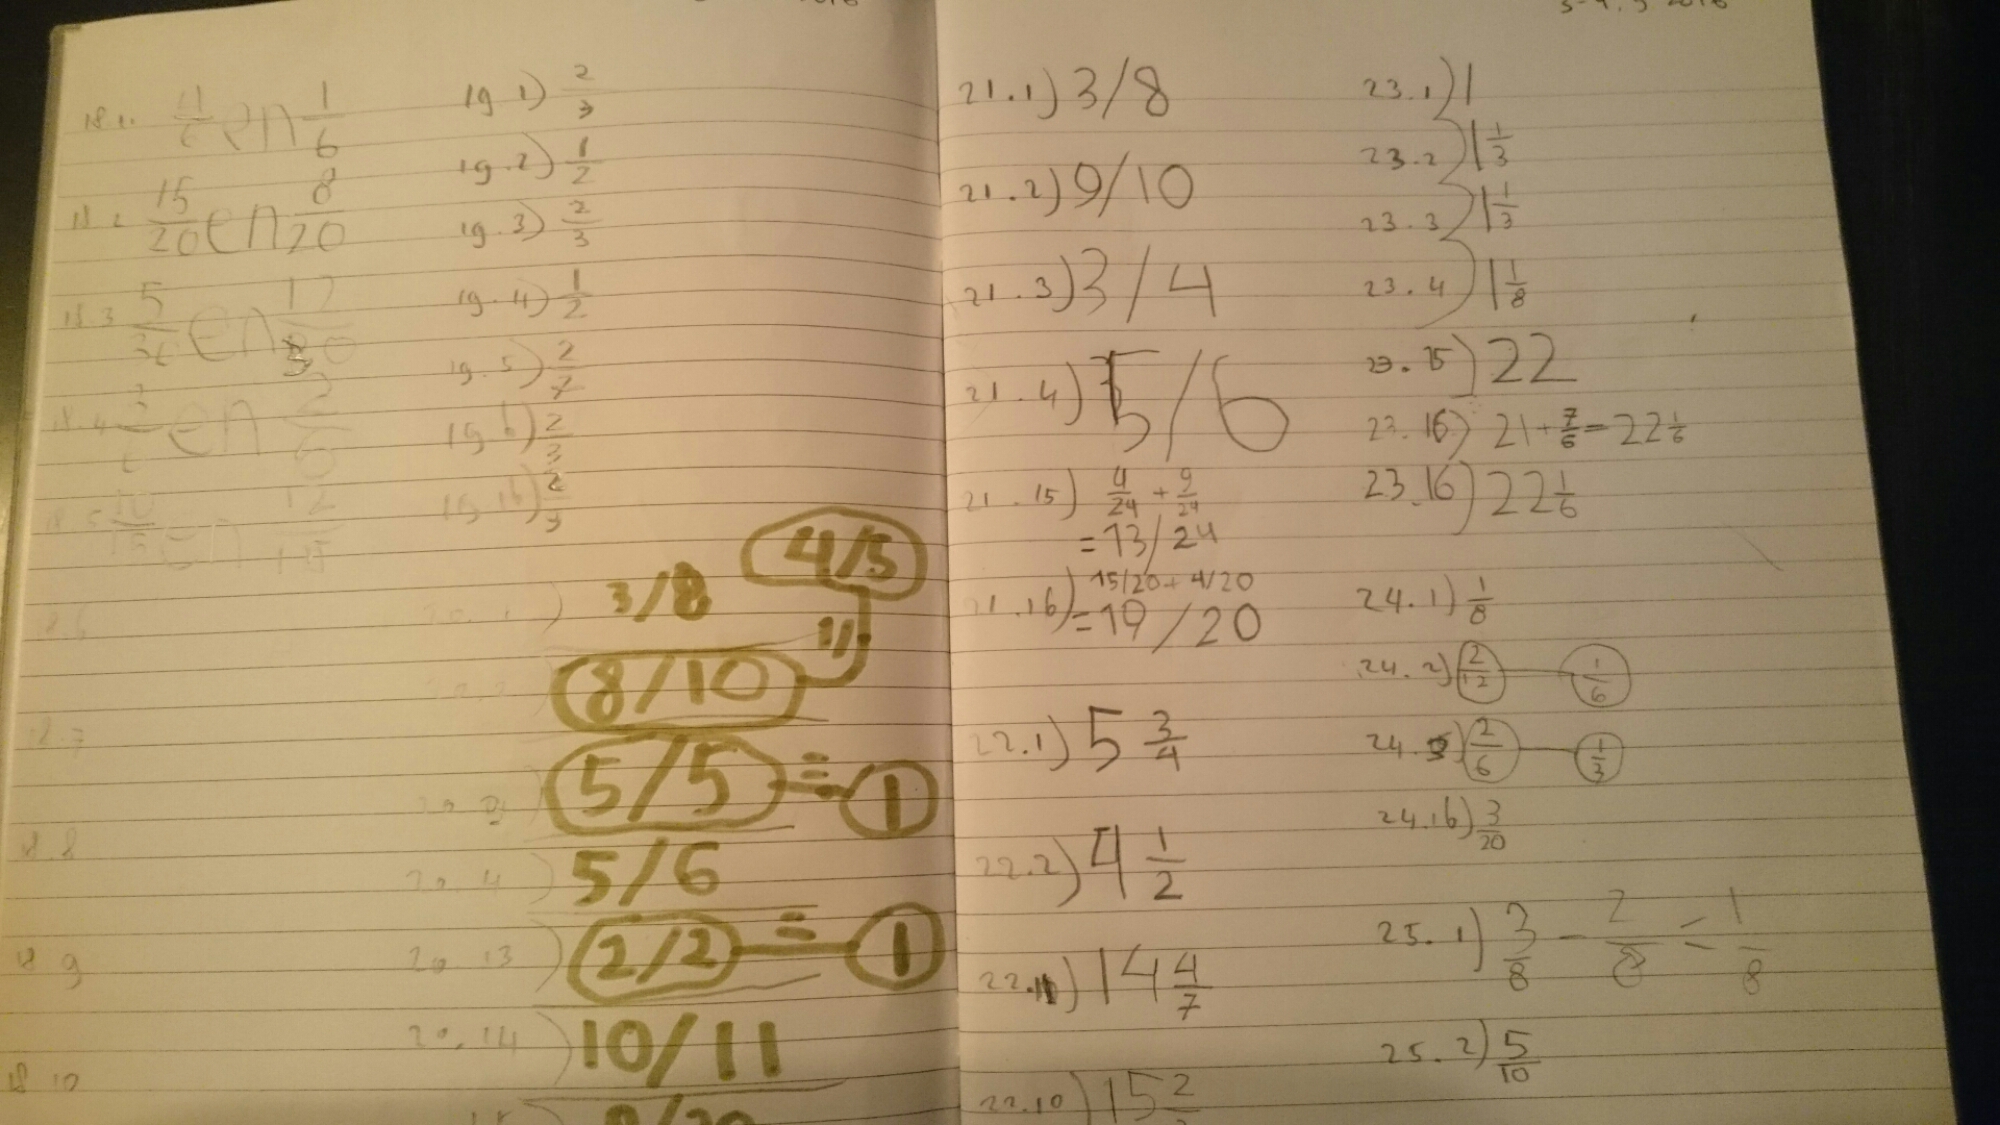 2016
18.1. 4/6 en 1/6
18.2 15/20 en 8/20
18.3 5/30 en 12/30
18.4
18.5 10/15 en 12/15
18.6
18.7
18.8
18 9
18 10
19.1) 2/3
19.2) 1/2
19.3) 2/3
19.4) 1/2
19.5) 2/7
19.6) 2/3
19.16) 2/3
20.1) 3/8
8/10 = 4/5
5/5 = 1
20.4) 5/6
20.13) 2/2 = 1
20.14) 10/11
2016
21.1) 3/8
21.2) 9/10
21.3) 3/4
21.4) 5/6
21.15) 4/24 + 9/24
= 13/24
21.16) 15/20 + 4/20
= 19/20
22.1) 5 3/4
22.2) 4 1/2
14 4/7
22.10) 15 2
23.1) 1
23.2) 1 1/3
23.3) 1 1/3
23.4) 1 1/8
23.15) 22
23.16) 21 + 7/6 = 22 1/6
23.16) 22 1/6
24.1) 1/8
24.2) 2/12 1/6
24. 2/6 1/3
24.16) 3/20
25.1) 3/8 - 2/8 = 1/8
25.2) 5/10